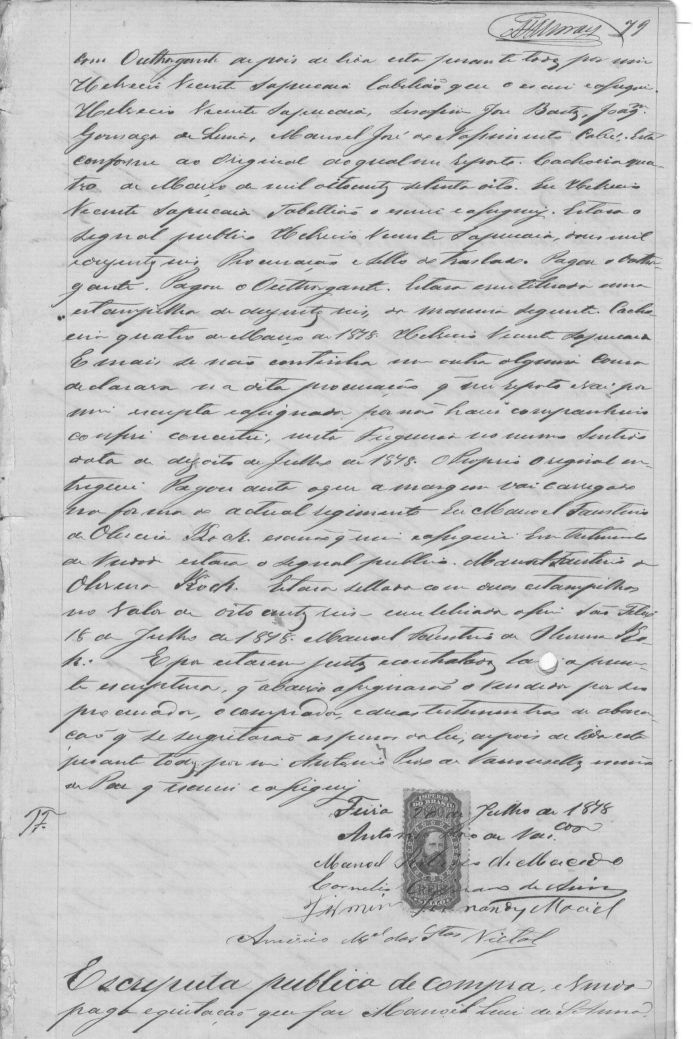 79
com Outhorgante depois de lida esta perante todos por mim
Helvecio Vicente Sapucaia tabelião que o escrevi e asignei.
Helvecio Vicente Sapucaia, Serafim José Bastos, Joaqm
Gonzaga de Lima, Manoel José do Nascimento Está
conforme ao Original ao qual me reporto. Cachoeira qua-
tro de Março de mil oitocentos setenta oito. Eu Helvecio
Vicente Sapucaia Tabellião o escrevi e asignei. Estava o
signal publico Helvecio Vicente Sapucaia, dois mil
e duzentos reis Procuração e sello do traslado. Pagou o Outhor-
gante. Pagou o Outhorgante. Estava enutilizada uma
estampilha de duzentos reis, da maneira seguinte. Cacho-
eira quatro de Março de 1878. Helvecio Vicente Sapucaia
E mais se não continha nem outra alguma cousa
declarava na dita procuração q me reporto e vai por
mim escripta e asignada
conferi concertei, nesta Freguesia no mesmo
data de dezoito de Julho de 1878. O Proprio Original en-
treguei Pagou desta a margem vai carregado
na forma do actual regimento Eu Manoel Faustino
de Oliveira Rock. escrivão q escrevi e asignei Em testemunho
de Verdade estava o signal publico. Manoel Faustino de
Oliveira Rock. Estava sellada com duas estampilhas
no Valor de oito centos reis enutilizada assim São Felix
18 de Julho de 1878. Manoel Faustino de Oliveira Ro-
k. E por estarem justos e contratados a presen-
te escriptura, q abaixo asignarão o vendedor por seu
procurador, o comprador, e duas testemunhas
q se sugeitarão as penas da lei, depois de lida esta
perante todos por mim Antonio Pires de Vasconcellos escrivão
de Paz q escrevi e asignei
Feira de Julho de 1878
IMPERIO DO BRASIL
Antonio de Vas.cos
Manoel de Macedo
Cornelio de
Firmino Fernandes Maciel
Americo Mel dos Stos Vidal
Escriptura publica de compra, e venda
paga e quitação que faz Manoel Luis de S. Anna